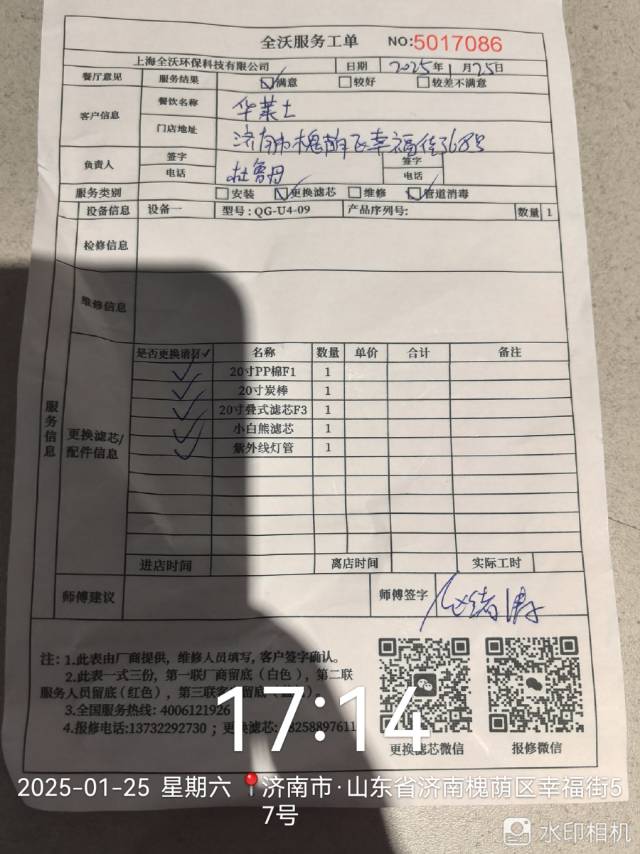 全沃服务工单 NO:5017086
上海全沃环保科技有限公司 日期 2025年1月25日
餐厅意见 服务结果 ☑满意 □较好 □较差不满意
客户信息 餐饮名称 华莱士
门店地址 济南市槐荫区幸福街368号
负责人 签字 杜鲁丹 签字
电话 电话
服务类别 □安装 ☑更换滤芯 □维修 ☑管道消毒
设备信息 设备一 型号: QG-U4-09 产品序列号: 数量 1
检修信息
维修信息
服务信息
更换滤芯/配件信息
是否更换请打✓ 名称 数量 单价 合计 备注
✓ 20寸PP棉F1 1
✓ 20寸炭棒 1
✓ 20寸叠式滤芯F3 1
✓ 小白熊滤芯 1
✓ 紫外线灯管 1
进店时间 离店时间 实际工时
师傅建议 师傅签字
注: 1.此表由厂商提供, 维修人员填写, 客户签字确认。
2.此表一式三份, 第一联厂商留底(白色), 第二联
服务人员留底(红色), 第三联客
3.全国服务热线: 4006121926
4.报修电话:13732292730 ; 更换滤芯:
更换滤芯微信 报修微信
17:14
2025-01-25 星期六 济南市·山东省济南槐荫区幸福街5
7号
水印相机